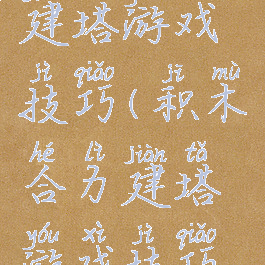 建塔游戏
jì qiǎo jī mù
技巧(积木
hé lì jiàn tǎ
合力建塔
yóu xì jì qiǎo
游戏技巧